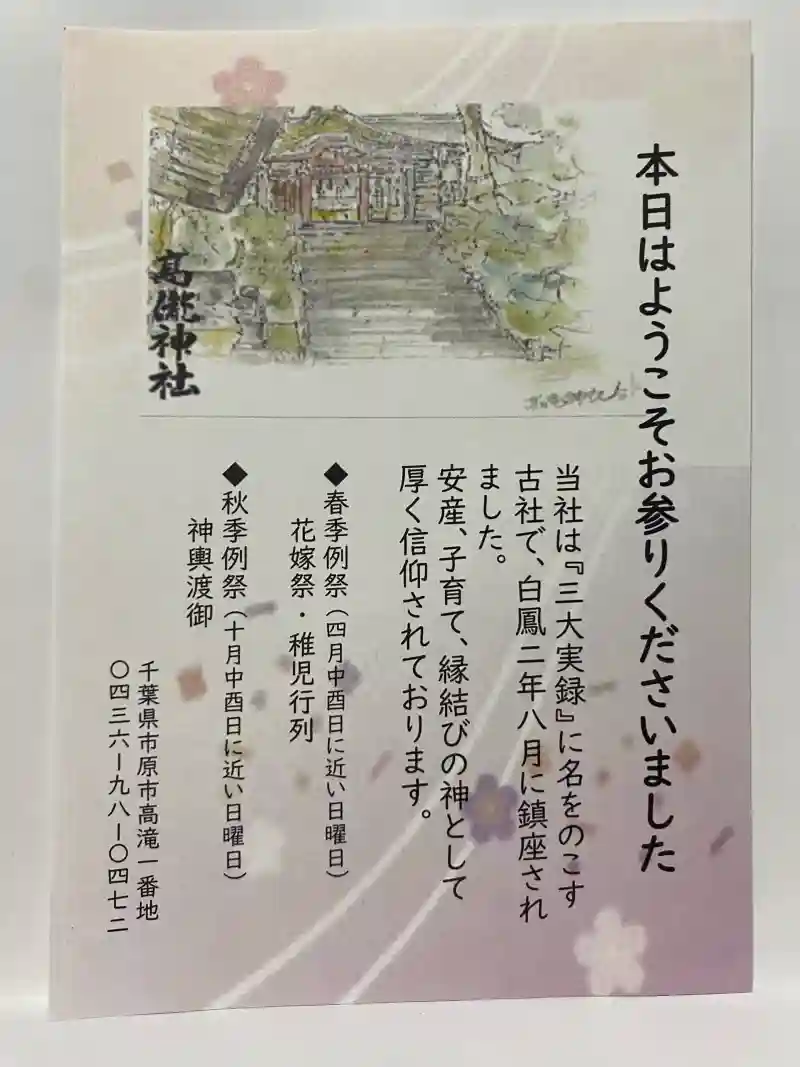 本日はようこそお参りくださいました
高瀧神社
当社は『三大実録』に名をのこす
古社で、白鳳二年八月に鎮座され
ました。
安産、子育て、縁結びの神として
厚く信仰されております。
◆春季例祭（四月中酉日に近い日曜日）
花嫁祭・稚児行列
◆秋季例祭（十月中酉日に近い日曜日）
神輿渡御
千葉県市原市高滝一番地
〇四三六ー九八ー〇四七二